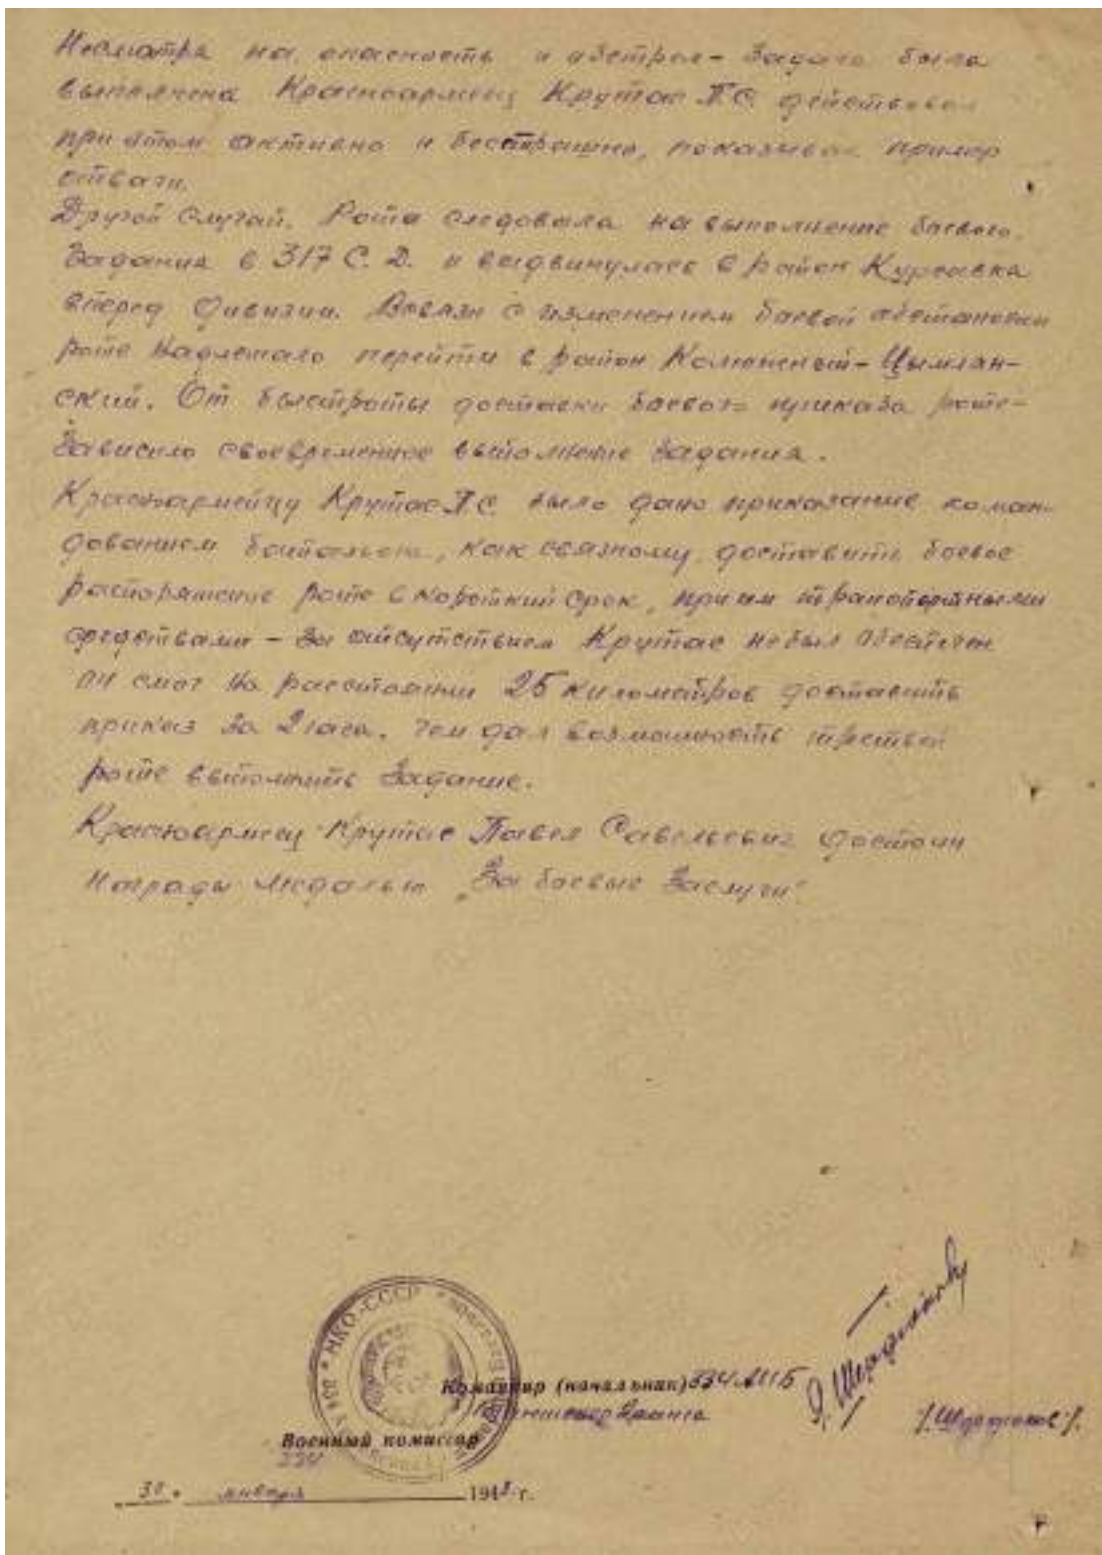 Несмотря на опасность и обстрел - Задача была
выполнена Красноармеец Крутас П С действовал
при этом активно и бесстрашно, показывая пример
отваги.
Другой Случай. Рота следовала на выполнение боевого
Задания в 317 С. Д. и выдвинулась в район Курсавка
вперед дивизии. Всвязи с изменением боевой обстановки
роте Надлежало перейти в район Колюжный-Цымлян-
ский. От быстроты доставки боевого приказа роте-
Зависило своевременное выполнение Задания.
Красноармейцу Крутас П С было дано приказание коман-
дованием батальона, как связному, доставить боевое
распоряжение роте в короткий срок, при транспортными
средствами - За отсутствием Крутас небыл обеспечен
он смог на расстоянии 25 километров доставить
приказ За 2 часа. Чем дал возможность третьей
роте выполнить Задание.
Красноармеец Крутас Павел Савельевич достоин
Награды медалью „За боевые Заслуги"
НКО-СССР
Командир (начальник)
Военный комиссар
334
„30" января 1943 г.